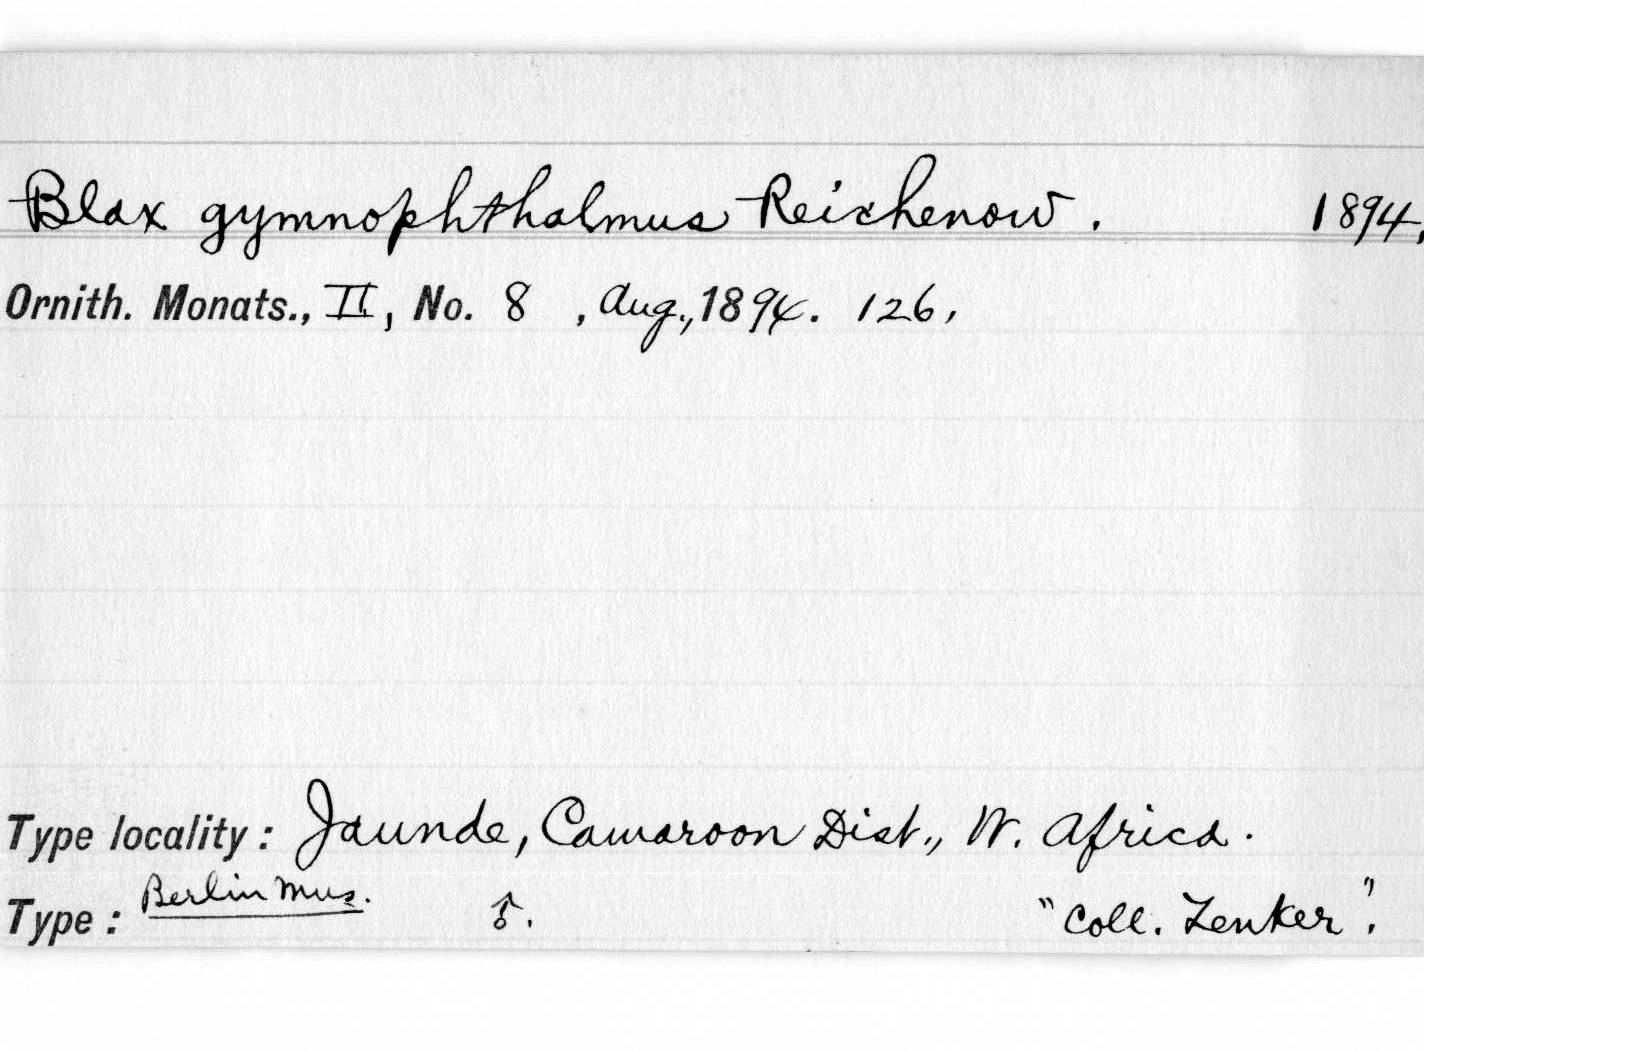 Blax gymnophthalmus Reichenow. 1894,
Ornith. Monats., II, No. 8 , Aug., 1894. 126,
Type locality: Jaunde, Camaroon Dist., W. Africa.
Type: Berlin Mus. ♂. "Coll. Zenker".